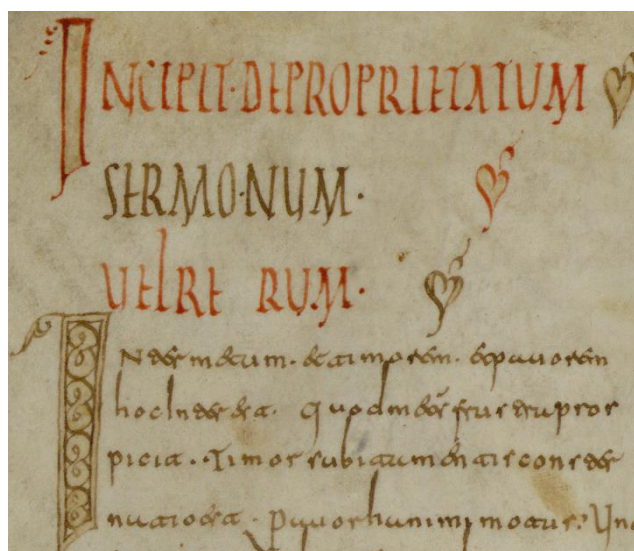 INCIPIT·DEPROPRIETATUM
SERMO·NUM·
UELRE RU.M·
INter metum· et timorem· et pauorem
hoc Inter est· Quod metus
picit· Timor subita mentis conster
natio est· Pauor animi motus· In